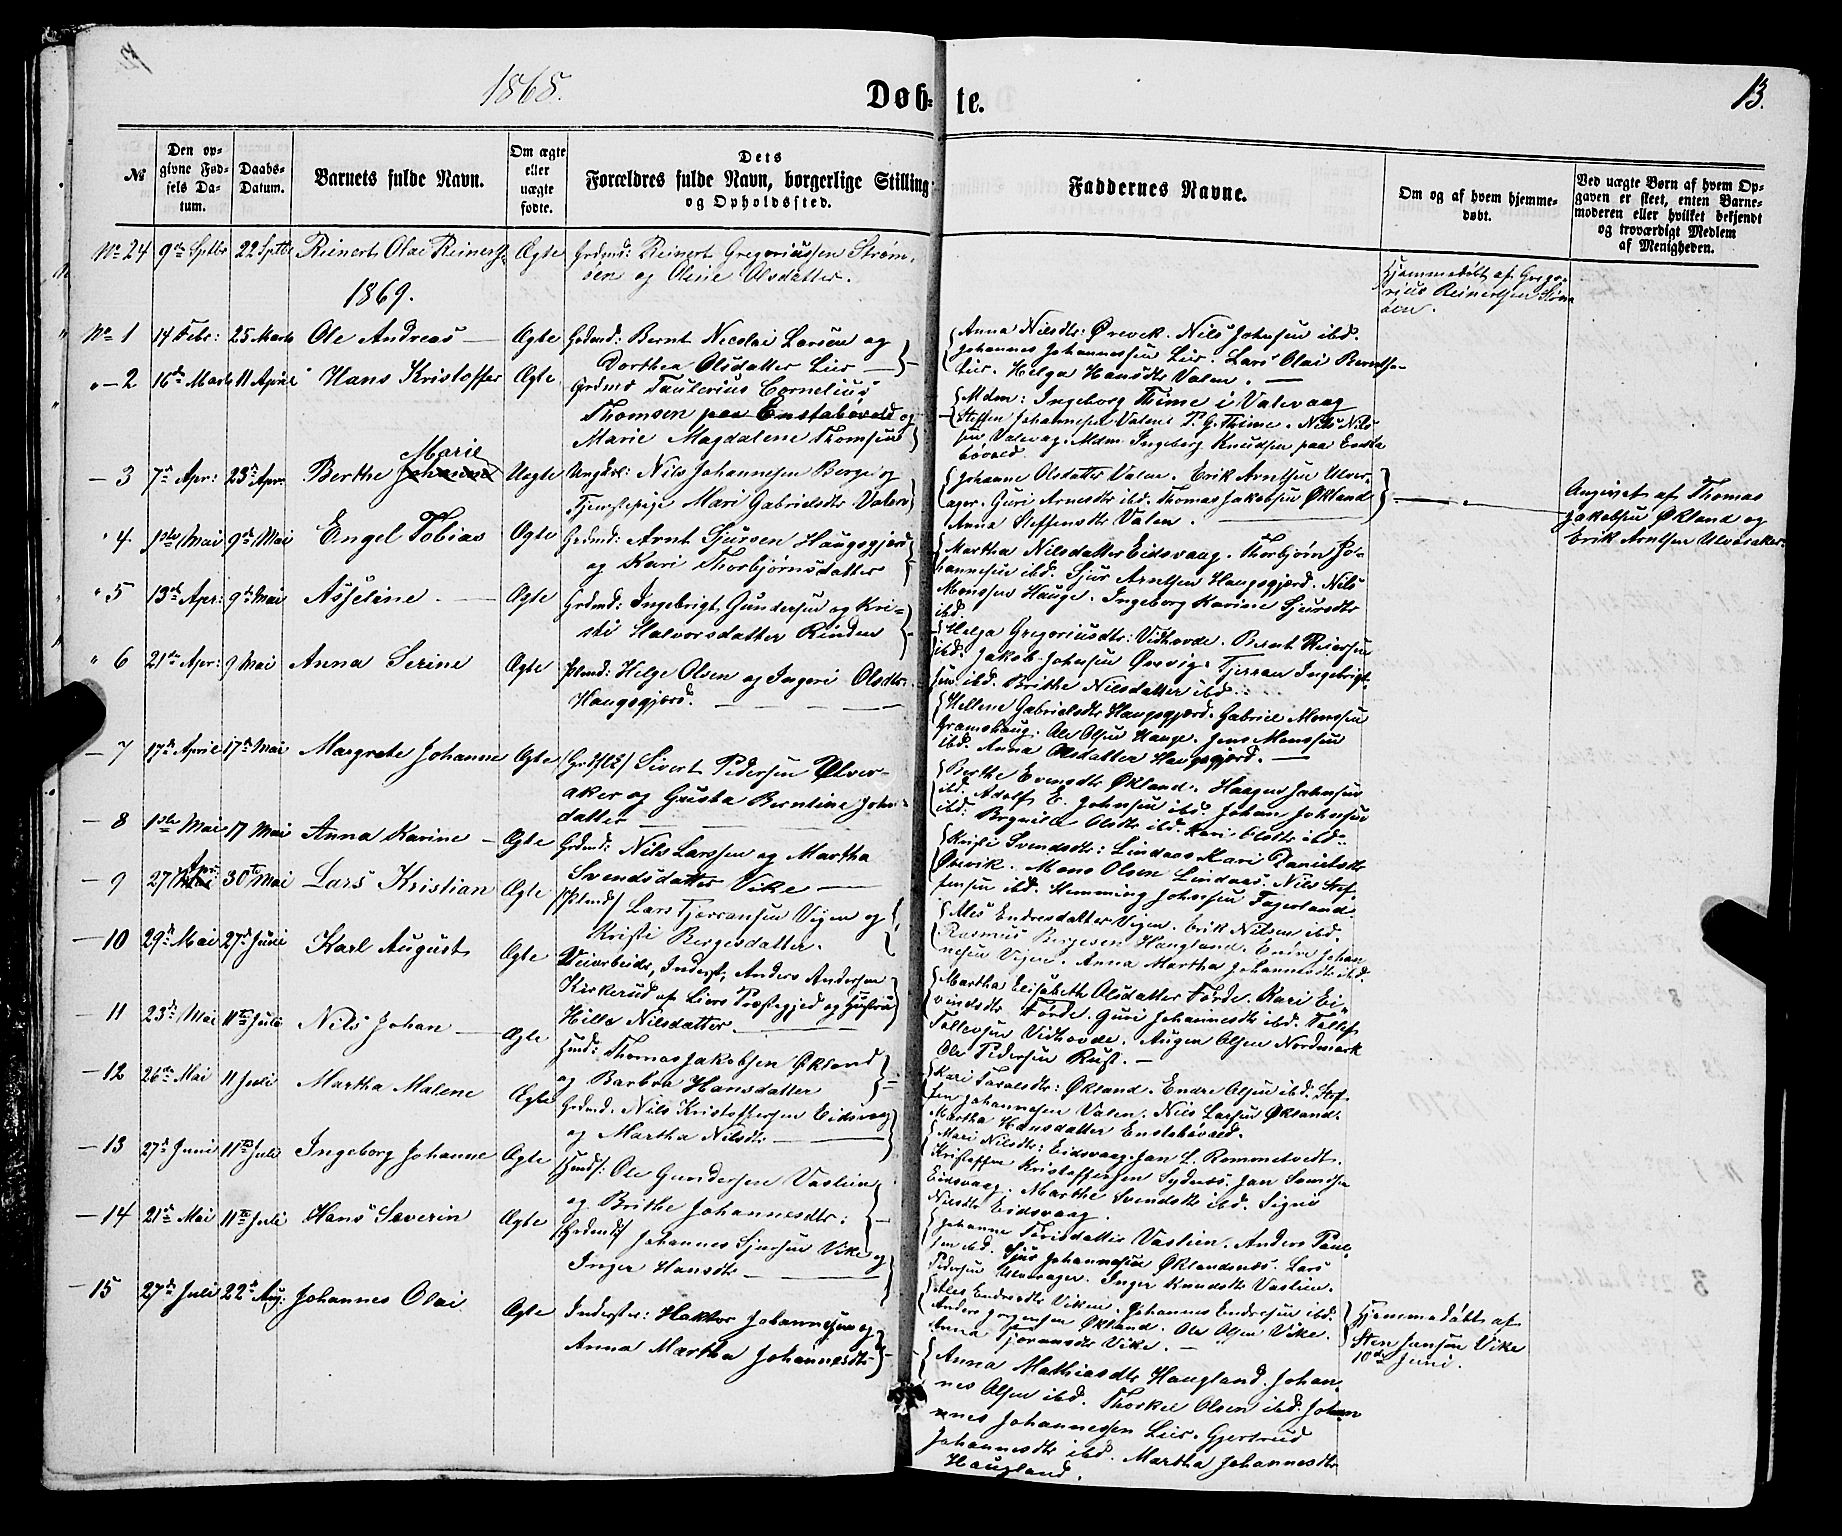 12
1868.
Døbte.
13.
№
Den opgivne Fødsels Datum.
Daabs-Datum.
Barnets fulde Navn.
Om ægte eller uægte fødte.
Dets Forældres fulde Navn, borgerlige Stilling og Opholdssted.
Faddernes Navne.
Om og af hvem hjemmedøbt.
Ved uægte Børn af hvem Opgaven er skeet, enten Barnemoderen eller hvilket bekjendt og troværdigt Medlem af Menigheden.
No 24 9de Septbr 22 Septbr Reinert Olai Ægte Grdmd: Reinert Gregoriussen Strømøen og Oline Olsdatter.
Hjemmedøbt af Gregorius Reinertsen
1869.
No 1 14 Febr: 25 Marts Ole Andreas Ægte Grdmd: Bernt Nicolai Larsen og
Dorthea Olsdatter Lier
Anna Nilsdtr: Ørevik. Nils Johnsen ibd.
Johannes Johannessen Lier. Lars Olai Berntsen
Lier. Helga Hansdtr Valen.
" 2 16de Marts 11 April Hans Kristoffer Ægte Grdmd Cornelius
Thomsen paa Enstabøvold og
Marie Magdalene Thomsen
Mdm: Ingeborg Thime i Valevaag
Steffen Johannesen Valen. P. G. Thime. Nils Nilssen
Valevag. Mdm Ingeborg Knudsen paa Enstabøvold.
3 7de Apr: 23de Apr: Berthe Johanne Marie Uægte Ungdrk: Nils Johannesen Berge og
Tjenestepige Mari Gabrielsdtr Valen
Johanne Olsdatter Valen. Erik Arntsen Ulverager.
Guri Arnesdtr ibd. Thomas Jakobsen Økland
Anna Steffensdtr Valen.
Angivet af Thomas
Jakobsen Økland og
Erik Arntsen Ulveraker.
" 4 1ste Mai 9de Mai Engel Tobias Ægte Grdmd: Arnt Sjursen Haugsgjerd
og Kari Thorbjørnsdatter
Martha Nilsdatter Eidsvaag. Thorbjørn Johannesen
ibd. Sjur Arntsen Haugsgjerd. Nils
Monssen Hauge. Ingeborg Karine Sjursdtr
ibd.
" 5 13de Apr: 9de Mai Asseline Ægte Grdmd: Ingebrigt Gundersen og Kristi
Halvorsdatter Rinden
Helga Gregoriusdtr: Vidhovde. Bernt Reiersen
ibd. Jakob Johnsen Ørevig. Tjerran Ingebrigtsen
ibd. Brithe Nilsdatter ibd.
" 6 21de Apr: 9 Mai Anna Serine Ægte Plmd: Helge Olsen og Ingeri Olsdtr:
Haugsgjerd.
Hellene Gabrielsdtr Haugsgjerd. Gabriel Monssen
Gramshaug. Ole Olsen Hauge. Jens Monssen
ibd. Anna Olsdatter Haugsgjerd.
7 17de April 17de Mai Margrete Johanne Ægte Sivert Pedersen Ølveraker
og Gurista Berntine Johnsdatter
Berthe Evensdtr Økland. Haagen Johnsen
ibd. Adolf E. Johnsen ibd. Johan Johnsen
ibd. Olsdtr ibd. Kari Olsdtr ibd.
8 1ste Mai 17 Mai Anna Karine Ægte Grdmd: Nils Larssen og Martha
Svendsdatter Vike
Kristi Svendsdtr: Lindaas. Kari Danielsdtr
Ørevik. Mons Olsen Lindaas. Nils Steffensen
ibd. Hemming Johnsen Fagerland.
9 27 Apr: 30te Mai Lars Kristian Ægte Plmd Lars Tjerransen Vejen og
Kristi Børgesdatter.
Ales Endresdatter Vejen. Erik Nilsen ibd.
Rasmus Børgesen Haugland. Endre Johannesen
Vejen. Anna Martha Johannesdtr ibd.
10 29de Mai 27de Juni Karl August Ægte Veiarbeider, Inderst, Anders Andersen
Kirkerud af Liers Præstegjeld og Hustru
Hilla Nilsdatter.
Martha Elisabeth Olsdatter Førde. Kari Eivindsdtr
Førde. Guri Johannesdtr ibd. Tollef
Tollevsen Vidhovde. Augen Olsen Nordmark
Ole Pedersen Rust.
11 23de Mai 11te Juli Nils Johan Ægte Hmd: Thomas Jakobsen Økland
og Barbra Hansdatter
Kari Taraldsdtr: Økland. Endre Olsen ibd. Steffen
Johannesen Valen. Nils Larsen Økland.
Martha Hansdatter Enstabøvold.
12 26de Mai 11 Juli Martha Malene Ægte Grdmd. Nils Kristoffersen Eidsvaag
og Martha Nilsdtr
Mari Nilsdtr: Eidsvaag. Jan L. Rommetvedt.
Kristoffer Kristoffersen Sydnæs. Jan
Eidsvaag. Marthe Svendsdtr ibd. Signe
Nilsdtr Eidsvaag.
13 27de Juni 11te Juli Ingeborg Johanne Ægte Hmd: Ole Gundersen Vastien
og Brithe Johannesdtr:
Johanne Vastien. Anders Paulsen
ibd. Sjur Johannesen Øklandsnæs. Lars
Pedersen Ulverager. Inger Knudsdtr Vastien.
14 21de Mai 11te Juli Hans Severin Ægte Grdmd Johannes Sjursen Vike og
Inger Hansdtr
Ales Endresdtr Viken. Johannes Endresen ibd.
Anders Jørgensen Økland. Ole Olsen Vike.
Anna Tjøransdtr Vike.
Hjemmedøbt af
Sten Jensen Vike
10de Juni.
15 27de Juli 22de Aug: Johannes Olai Ægte Inderster: Haktor Johannesen og
Anna Martha Johannesdtr
Anna Mathiasdtr Haugland. Johannes
Olsen ibd. Thorkel Olsen ibd. Johannes
Johannessen Lier. Gjertrud
Johannesdtr ibd. Martha Johannesdtr
Haugland.